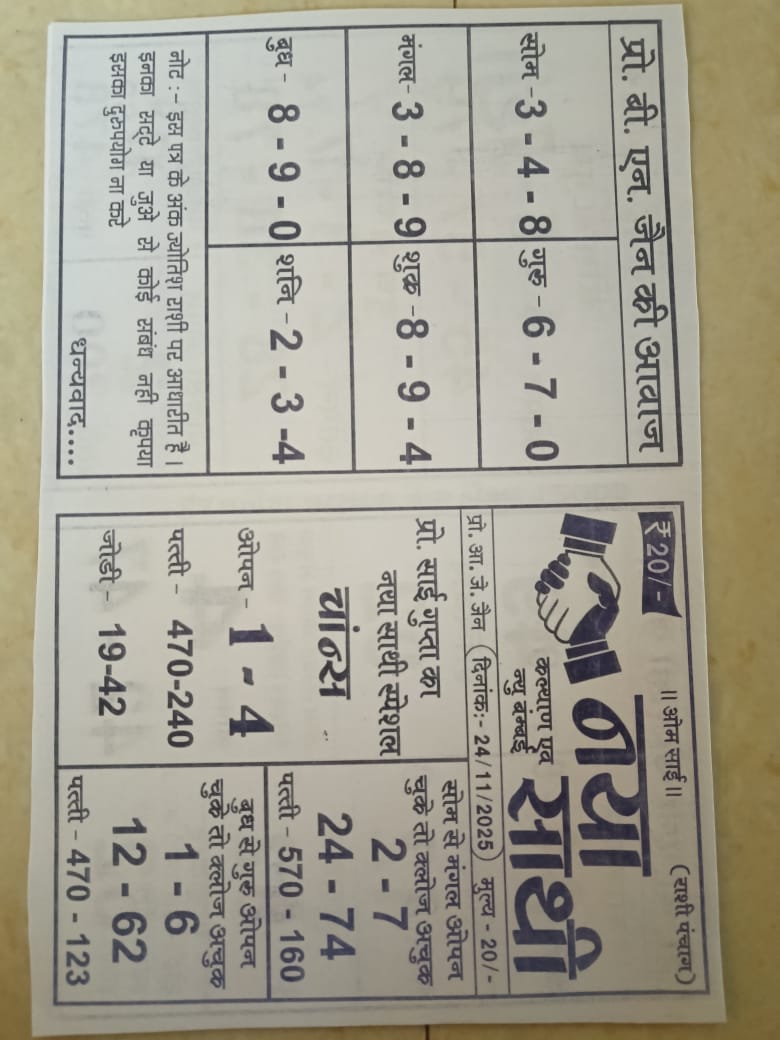 ₹ 20/-
॥ ओम साई ॥
(राशी पंचाग)
नया साथी
कल्याण एव
न्यु बम्बई
प्रो. आ.जे. जैन
दिनांक:- 24/11/2025
मुल्य - 20/-
प्रो. साई गुप्ता का
नया साथी स्पेशल
चांन्स
ओपन - 1 - 4
पत्ती - 470-240
जोडी - 19-42
सोम से मंगल ओपन
चुके तो क्लोज अचुक
2 - 7
24 - 74
पत्ती - 570 - 160
बुध से गुरु ओपन
चुके तो क्लोज अचुक
1 - 6
12 - 62
पत्ती - 470 - 123
प्रो. बी. एन. जैन की आवाज
सोम - 3 - 4 - 8
गुरु - 6 - 7 - 0
मंगल- 3 - 8 - 9
शुक्र - 8 - 9 - 4
बुध - 8 - 9 - 0
शनि - 2 - 3 -4
नोट :- इस पत्र के अंक ज्योतिश राशी पर आधारीत है।
इनका सट्टे या जुअे से कोई संबंध नही कृपया
इसका दुरुपयोग ना करे
धन्यवाद....